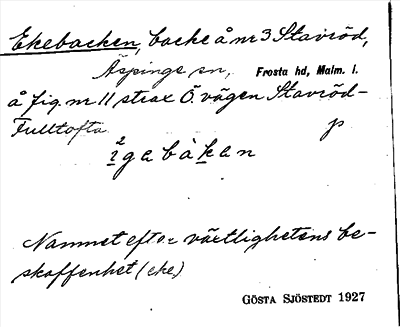 Ekebacken, backe å nr 3 Stavröd,
Äspinge sn, Frosta hd, Malm. l.
å fig. nr 11 strax Ö. vägen Stavröd-
Fulltofta. p
²ịgabàkan
Nammet efter växtlighetens be-
skaffenhet (eke)
GÖSTA SJÖSTEDT 1927